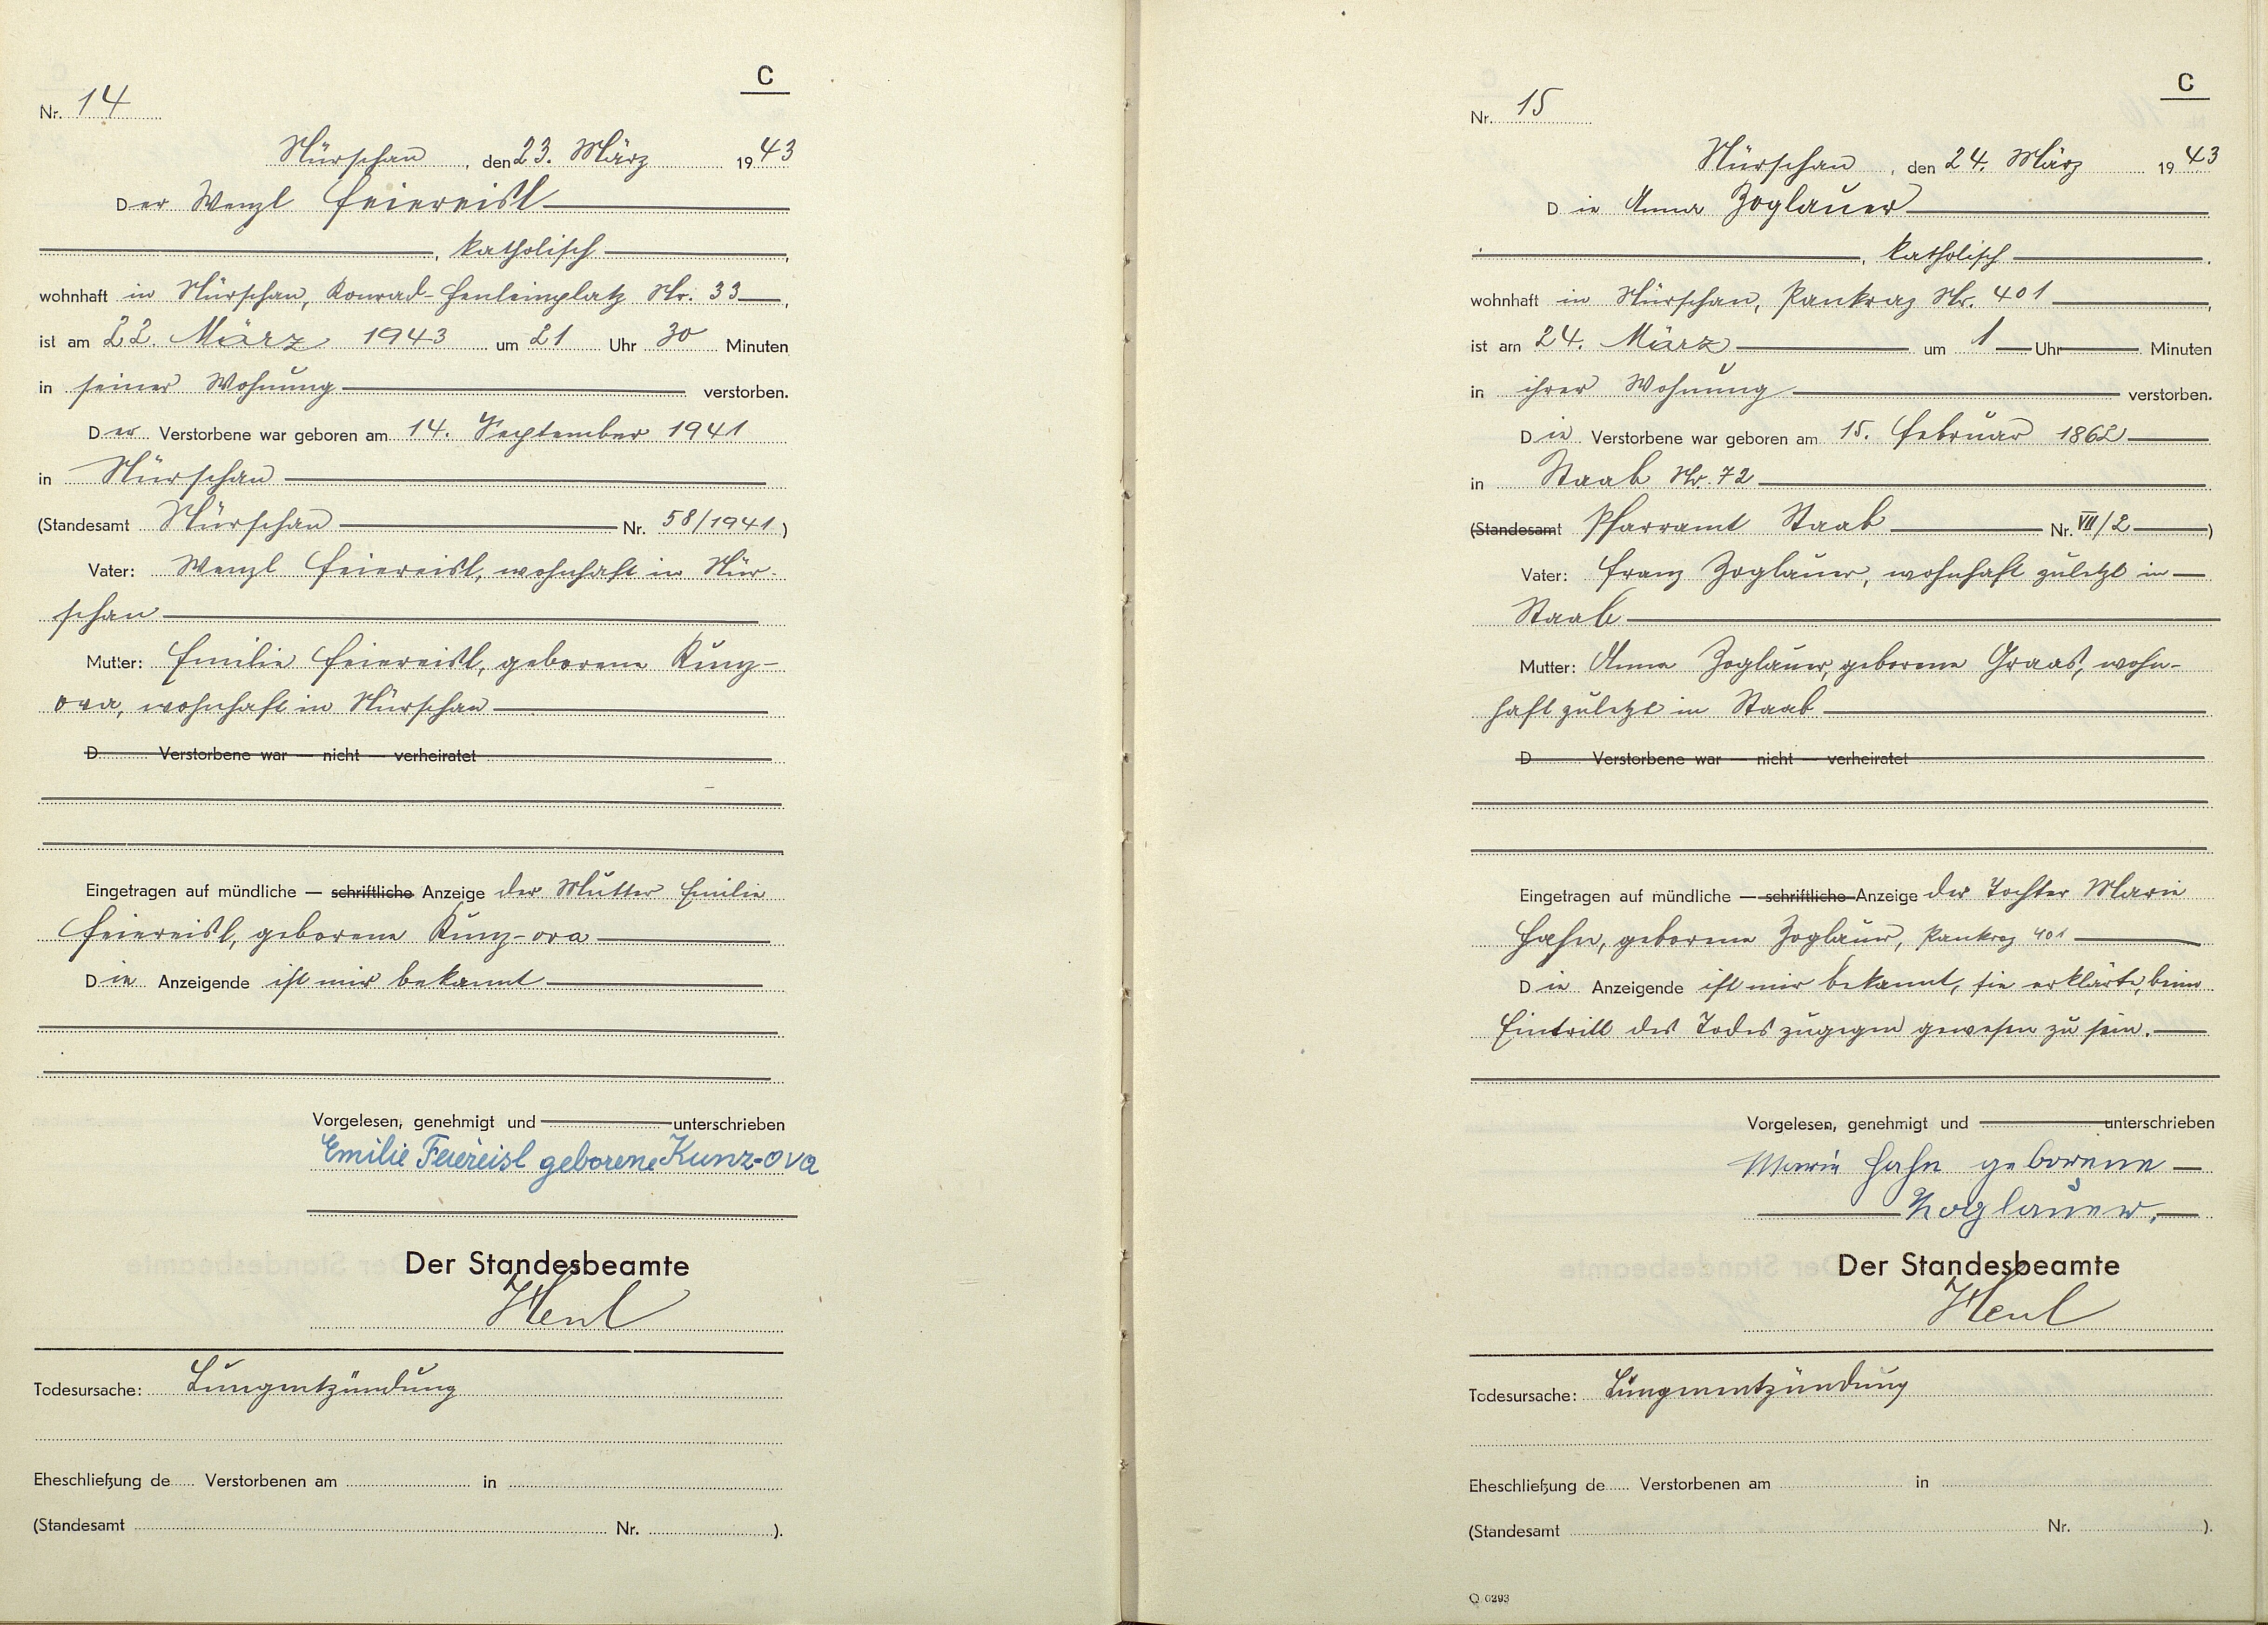 C
Nr. 14
Nürschan, den 23. März 1943
Der Wenzl Feiereisl
, katholisch,
wohnhaft in Nürschan, Konrad-Henleinplatz Nr. 33,
ist am 22. März 1943 um 21 Uhr 30 Minuten
in seiner Wohnung verstorben.
Der Verstorbene war geboren am 14. September 1941
in Nürschan
(Standesamt Nürschan Nr. 58/1941)
Vater: Wenzl Feiereisl, wohnhaft in Nür-
schan
Mutter: Emilie Feiereisl, geborene Kunz-
ova, wohnhaft in Nürschan
D Verstorbene war — nicht — verheiratet
Eingetragen auf mündliche — schriftliche Anzeige der Mutter Emilie
Feiereisl, geborene Kunz-ova
Die Anzeigende ist mir bekannt
Vorgelesen, genehmigt und unterschrieben
Emilie Feiereisl geborene Kunz-ova
Der Standesbeamte
Henl
Todesursache: Lungentzündung
Eheschließung de Verstorbenen am in
(Standesamt Nr. ).
C
Nr. 15
Nürschan, den 24. März 1943
Die Anna Zoglauer
, katholisch,
wohnhaft in Nürschan, Pankraz Nr. 401,
ist am 24. März um 1 Uhr Minuten
in ihrer Wohnung verstorben.
Die Verstorbene war geboren am 15. Februar 1862
in Staab Nr. 72
(Standesamt Pfarramt Staab Nr. VII/2)
Vater: Franz Zoglauer, wohnhaft zuletzt in
Staab
Mutter: Anna Zoglauer, geborene Graas, wohn-
haft zuletzt in Staab
D Verstorbene war — nicht — verheiratet
Eingetragen auf mündliche — schriftliche Anzeige der Tochter Marie
Hahn, geborene Zoglauer, Pankraz 401
Die Anzeigende ist mir bekannt, sie erklärte, beim
Eintritt des Todes zugegen gewesen zu sein.
Vorgelesen, genehmigt und unterschrieben
Marie Hahn geborene
Zoglauer.
Der Standesbeamte
Henl
Todesursache: Lungenentzündung
Eheschließung de Verstorbenen am in
(Standesamt Nr. ).
Q 0293